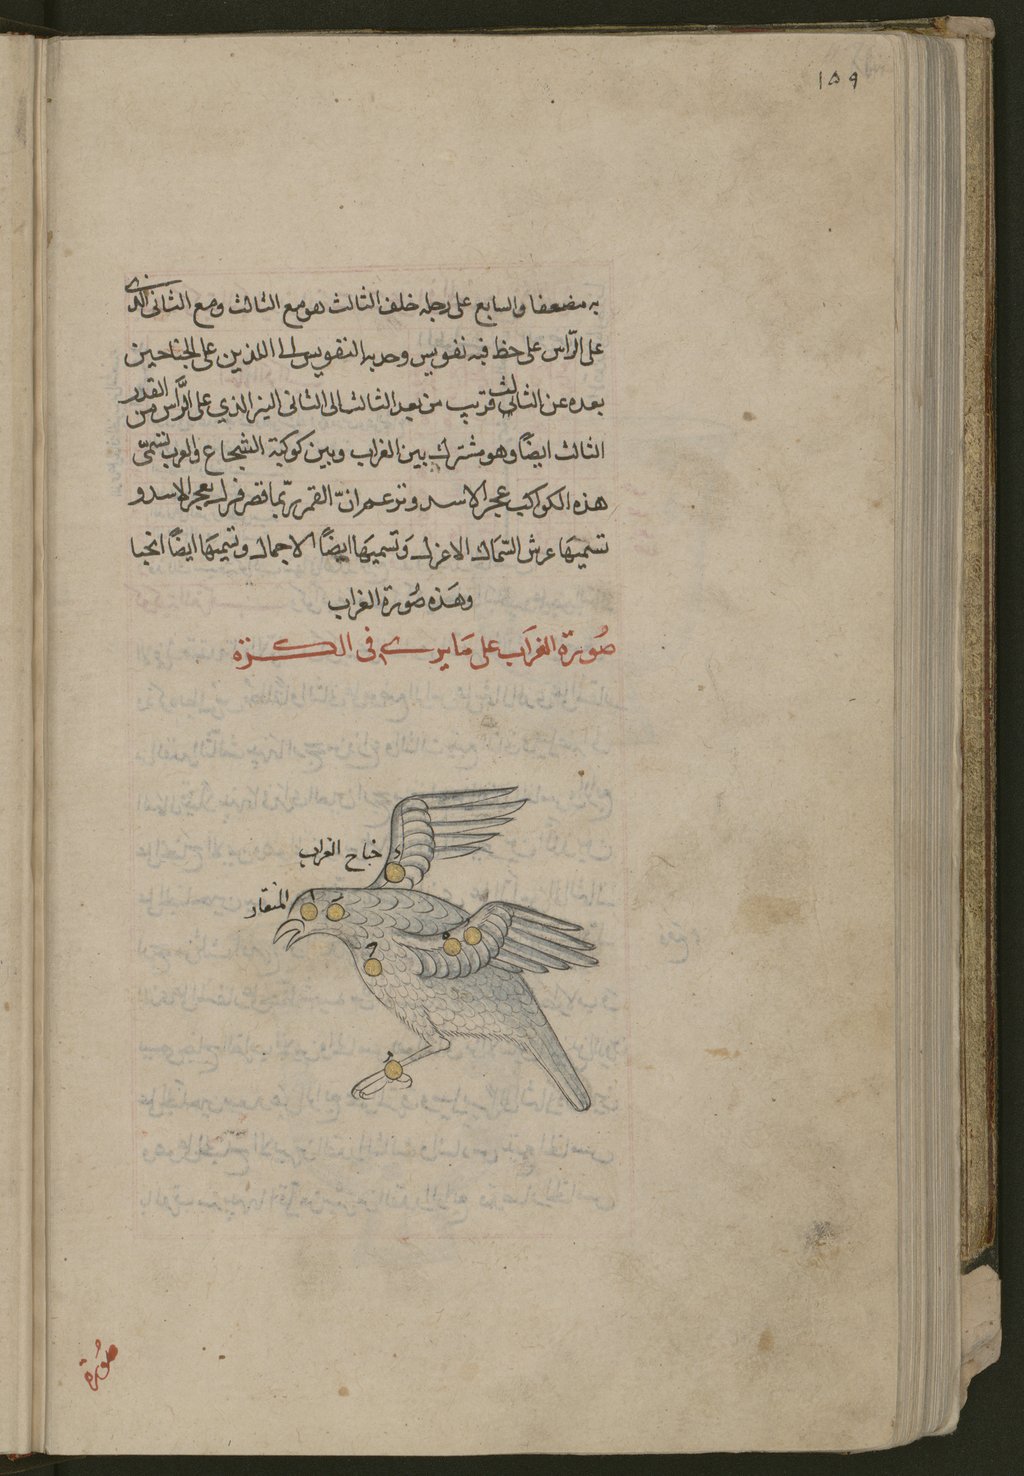 ١٥٩
به مضعفا والسابع على رجله خلف الثالث هو مع الثالث ومع الثانى الذى
على الرّأس على خط فيه تقويس وحدبه التقويس الى اللذين على الجناحين
بعده عن الثالث قريب من بعد الثالث الى الثانى النير الذي على الرَّأس من القدر
الثالث ايضًا وهو مشترك بين الغراب وبين كوكبة الشجاع والعرب تسمّى
هذه الكواكب عجز الاسد وتزعم انّ القمر ربّما قصر فنزل بعجز الاسد و
تسميهَا عرش السّماك الاعزل وَتسميهَا ايضًا الاجمال وتسميهَا ايضًا الخبا
وهَذه صُورة الغراب
صُورَة الغرَاب على مَا يرى فى الكرة
جناح الغراب
المنقار
١
٢
٣
٤
٥
٦
٧
صُورة